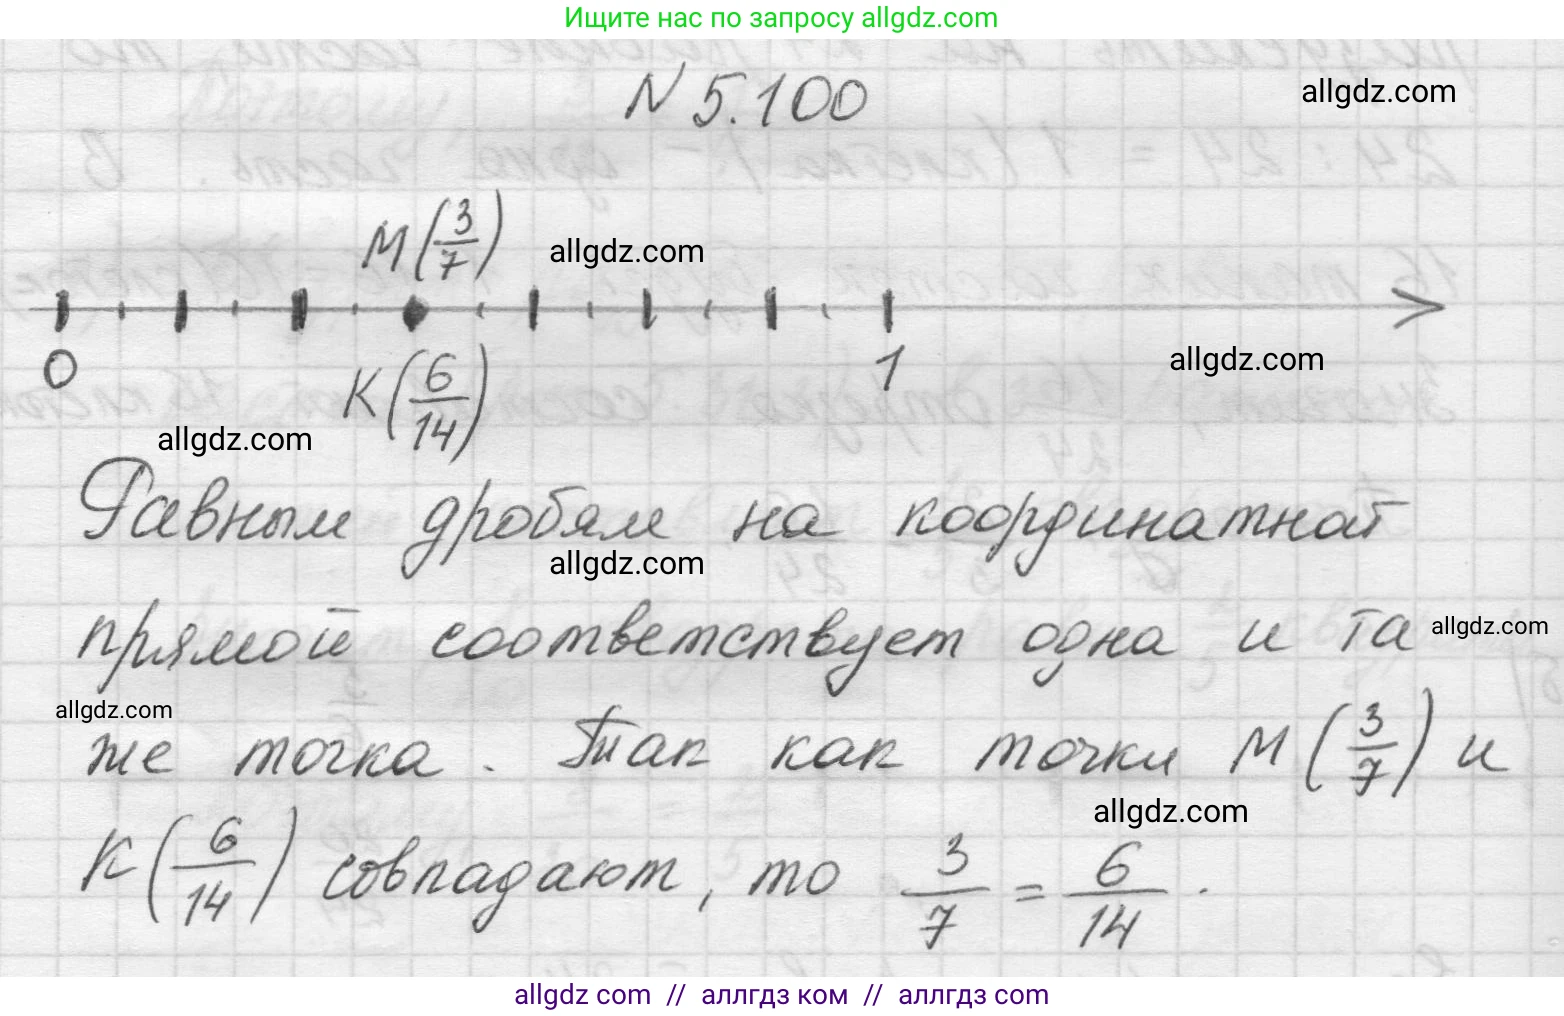 Ищите нас по запросу allgdz.com
N 5.100
allgdz.com
M(3/7)
allgdz.com
0
1
K(6/14)
allgdz.com
allgdz.com
Равным дробям на координатной
allgdz.com
прямой соответствует одна и та
allgdz.com
allgdz.com
же точка. Так как точки M(3/7) и
allgdz.com
K(6/14) совпадают, то 3/7 = 6/14.
allgdz com // аллгдз ком // аллгдз com